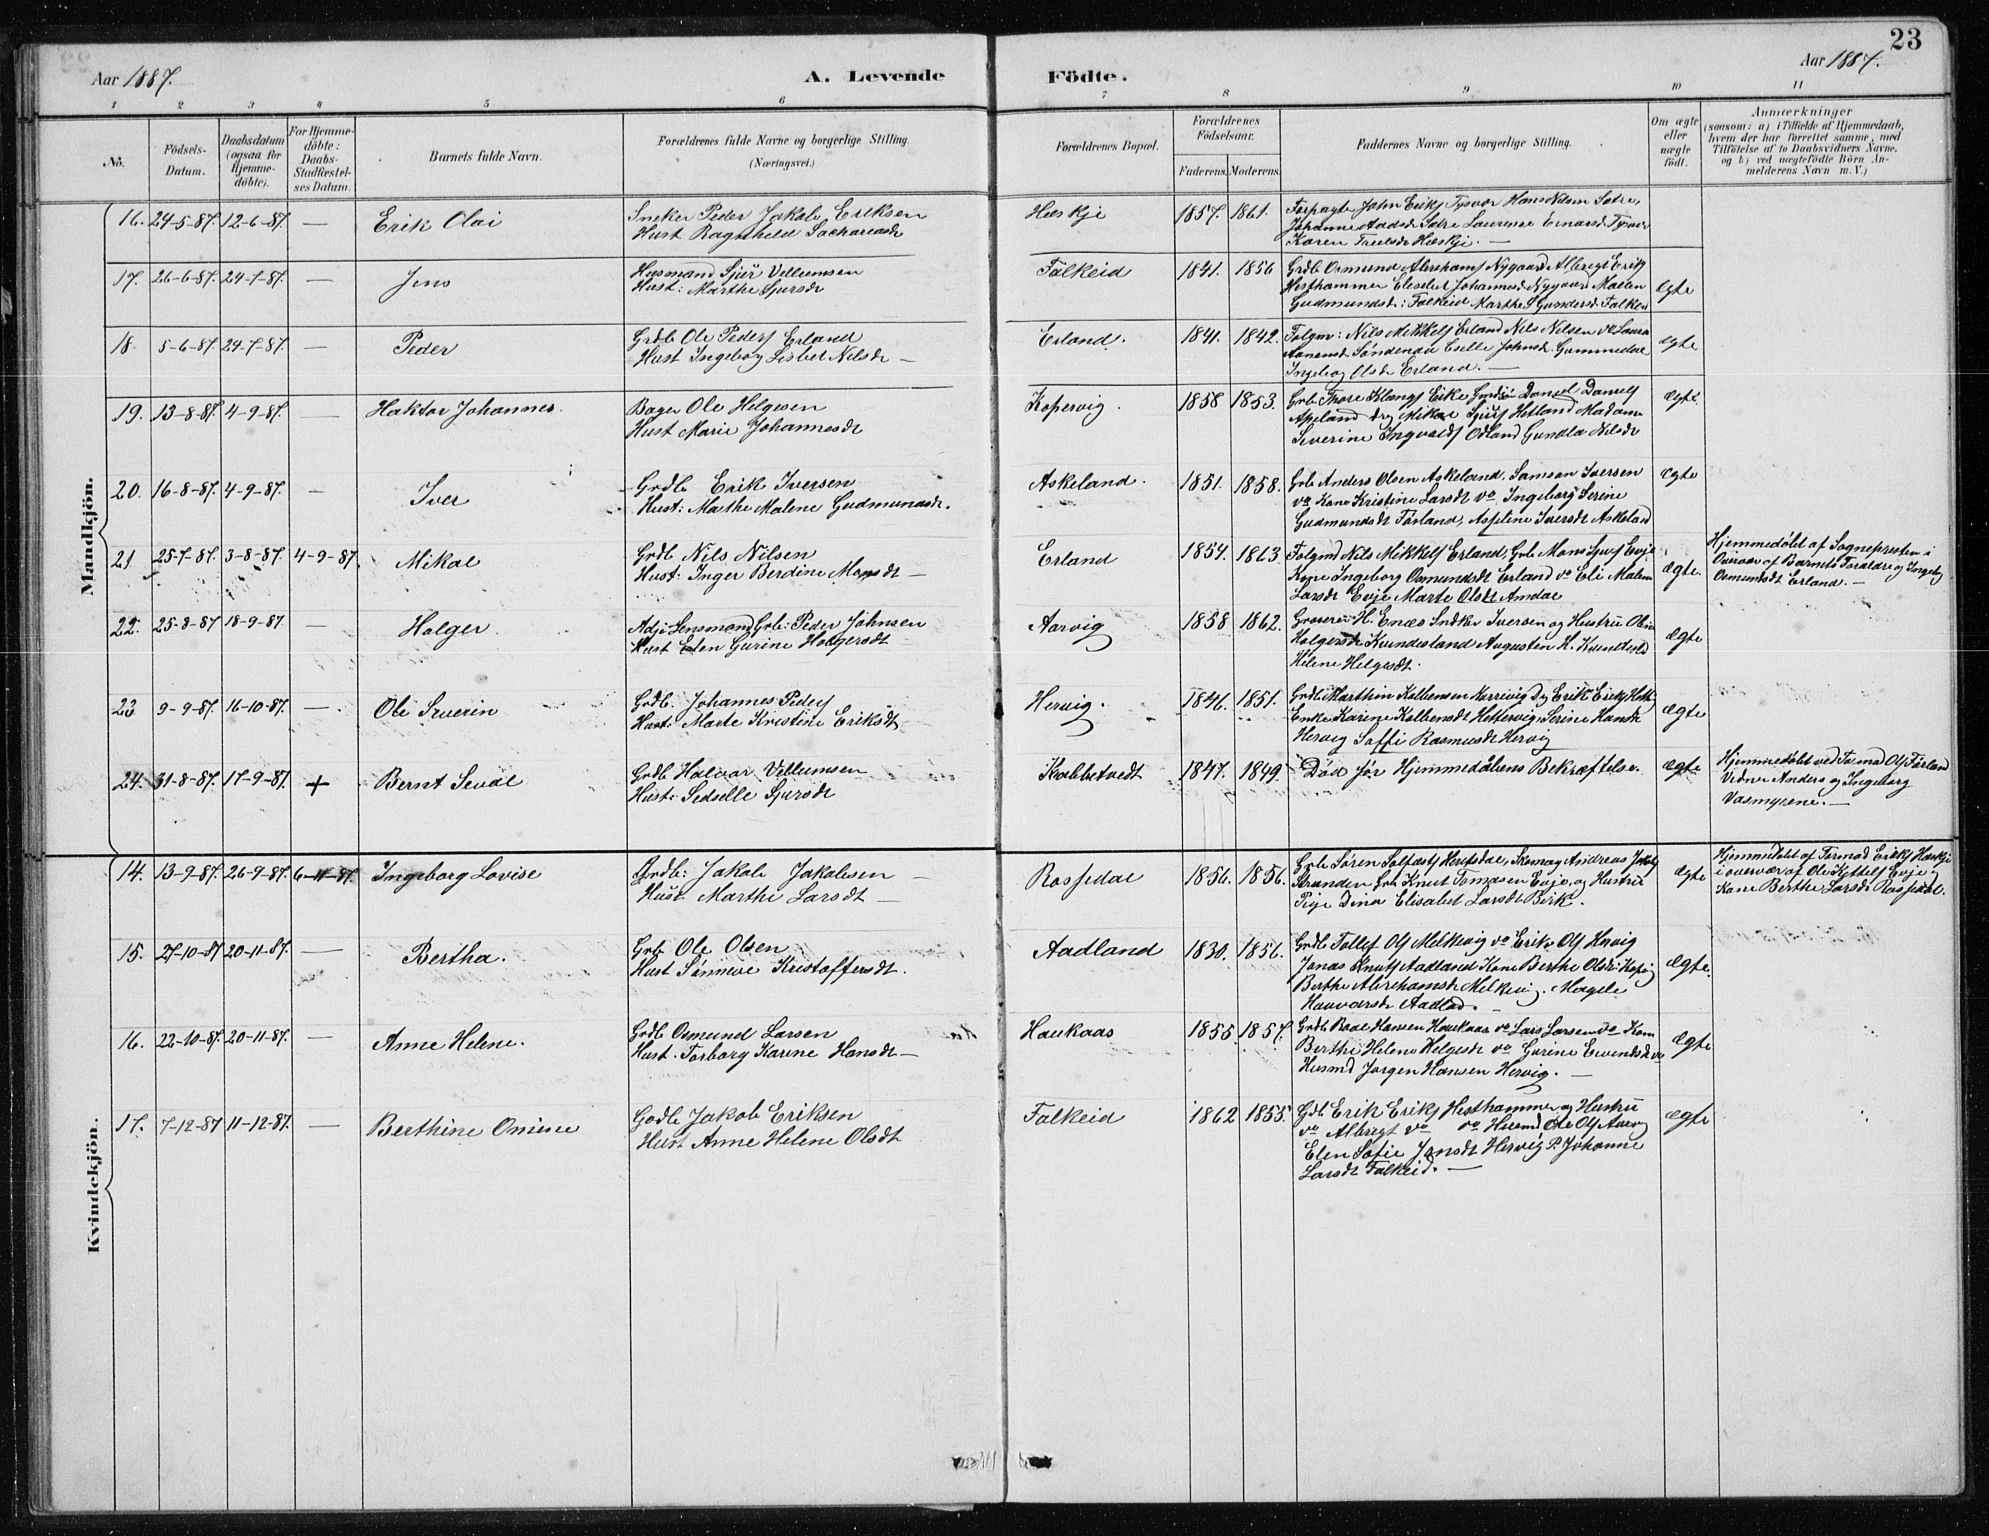 23
Aar 1887.
A. Levende Födte.
Aar 1887.
1 2 3 4 5 6 7 8 9 10 11
No.
Födsels-Datum.
Daabsdatum (ogsaa for Hjemme-döbte).
For Hjemme-döbte: Daabs-Stadfæstel-ses Datum.
Barnets fulde Navn.
Forældrenes fulde Navne og borgerlige Stilling. (Næringsvei.)
Forældrenes Bopæl.
Forældrenes Födselsaar.
Faderens. Moderens.
Faddernes Navne og borgerlige Stilling.
Om ægte eller uægte födt.
Anmærkninger
(saasom: a) i Tilfælde af Hjemmedaab,
hvem der har forrettet samme, med
Tilföielse af to Daabsvidners Navne.
og b) ved uægtefödte Börn An-
melderens Navn m. V.)
Mandkjön.
16. 24-5-87. 12-6-87. — Erik Olai
Sneker Peder Jakob Eriksen
Hust Ragnhild Sachariasdt
Hæskje 1857. 1861.
Forpagte John Eriks Tysvær Hans Nilsen Sotre,
Johanne Aadsdt Sotre Laurense Einarsd Tysvær
Karen Troelsdt Hæskje. —
17. 26-6-87. 24-7-87. — Jens
Husmand Sjur Vellumsen
Hust: Marthe Sjursdt
Falkeid 1841. 1856
Grdb Osmund Abrahams Nygaard Albregt Eriks
Hesthammer Elesebet Johannesd Nygaard Malen
Gudmundsdt: Falkeid Marthe S Gundersdt Falkei
ægte
18. 5-6-87. 24-7-87. — Peder
Grdb Ole Peders Erland
Hust Ingebog Lisbet Nilsdt —
Erland. 1841. 1842.
Folgm: Nils Mikkels Erland Nils Nilsen vo Laura
Aanensd Söndenaa Eselle Johnsdt Gammedae
Ingebog Olsdt Erland. —
ægte
19. 13-8-87. 4-9-87. — Haktor Johannes.
Bager Ole Helgesen
Hust Marie Johannesdt
Kopervig. 1858 1853.
Severine Ingvalds Odland Gundla Nilsdt
ægte.
20. 16-8-87. 4-9-87. — Iver
Grdb Erik Iversen
Hust: Marthe Malene Gudmundsdt.
Askeland. 1851. 1858.
Grb Anders Olsen Askeland, Samson Iversen
vo Kone Kristine Larsdt vo, Ingeborg Serine
Gudmundsdt Førland, Aspeline Iversdt Askelad
ægte
21 25-7-87. 3-8-87. 4-9-87. Mikal
Grdb Nils Nilsen
Hust: Inger Berdine Monsdt —
Erland 1854. 1863
Folgmd Nils Mikkels Erland, Grb Mons Sjurs Evje
Kone Ingeborg Osmundsdt Erland vo Eli Malene
Larsdt Evje Marte Olsdt Amdae
ægte.
Hjemmedøbt af Sognepresten i
Overvær af Barnets Foraldre og Ingebg
Osmundsdt Erland. —
22. 25-8-87 18-9-87. — Holger
Adj: Lensmand Grb: Peder Johnsen
Hust Elen Gurine Holgersdt —
Aarvig 1858 1862.
Helene Helgesdt.
ægte
23 9-9-87. 16-10-87. — Ole Severin
Grdb. Johannes Peders
Hust: Marte Kristine Eriksdt
Hervig. 1846. 1851.
Enke Karine Kolbensdt Hettervig, Serine Hansdt
Hervig Soffi Rasmusdt Hervig
ægte
24. 31-8-87. 17-9-87 + Bernt Seval
Grdb Halvor Vellumsen
Hust: Sedselle Sjursdt
Kobbetvedt 1847. 1849.
Död för Hjemmedåbens Bekræftelse.
ægte
Hjemmedøbt ved Tormod Ols Førland
Vidner Anders og Ingeborg
Vasmyrene. —
Kvindekjön.
14. 13-9-87. 26-9-87. 6-11-87. Ingeborg Lovise
Grdb: Jakob Jakobsen —
Hust Marthe Larsdt —
Rossedae 1856. 1856.
Stranden Grb Knut Tomasen Evje, og Hustru
Pige Dina Elisabet Larsdt Birk.
ægte
Hjemmedøbt af Tormod Eriks Hæskje
i overvær af Ole Kettels Evje og
Kone Berthe Larsdt Rossedal.
15. 27-10-87 20-11-87. — Bertha.
Grb Ole Olsen
Hust Sönneve Kristoffersdt.
Aadland 1830. 1856.
Grdb Tollef Ols Melkevig vo Erik Ols Hervig
Jonas Knuts Aadland Kone Berthe Olsdt: Kopvig
Berthe Abrahamsdt Melkevig. Magele
Haavarsdt Aadlad.
ægte.
16. 22-10-87. 20-11-87. — Anne Helene.
Grdb Osmund Larsen
Hust. Torborg Karine Hansdt —
Haukaas 1855 1857.
Grdb Roal Hansen Haukaas vo Lars Larsen vo Kone
Berthe Helene Helgesdt vo Gurine Eivendsdt vo
Husmd Jorgen Hansen Hervig. —
ægte
17. 7-12-87 11-12-87. — Berthine Omine
Grdb Jakob Eriksen
Hust Anne Helene Olsdt
Falkeid 1862 1855.
Gdb Erik Eriks Hesthammer og Hustru
vo Albregt vo vo Husmd Ole Ols Aarvig
Elen Sofie Jonsdt Hervig P. Johanne
Larsdt Falkeid. —
ægte